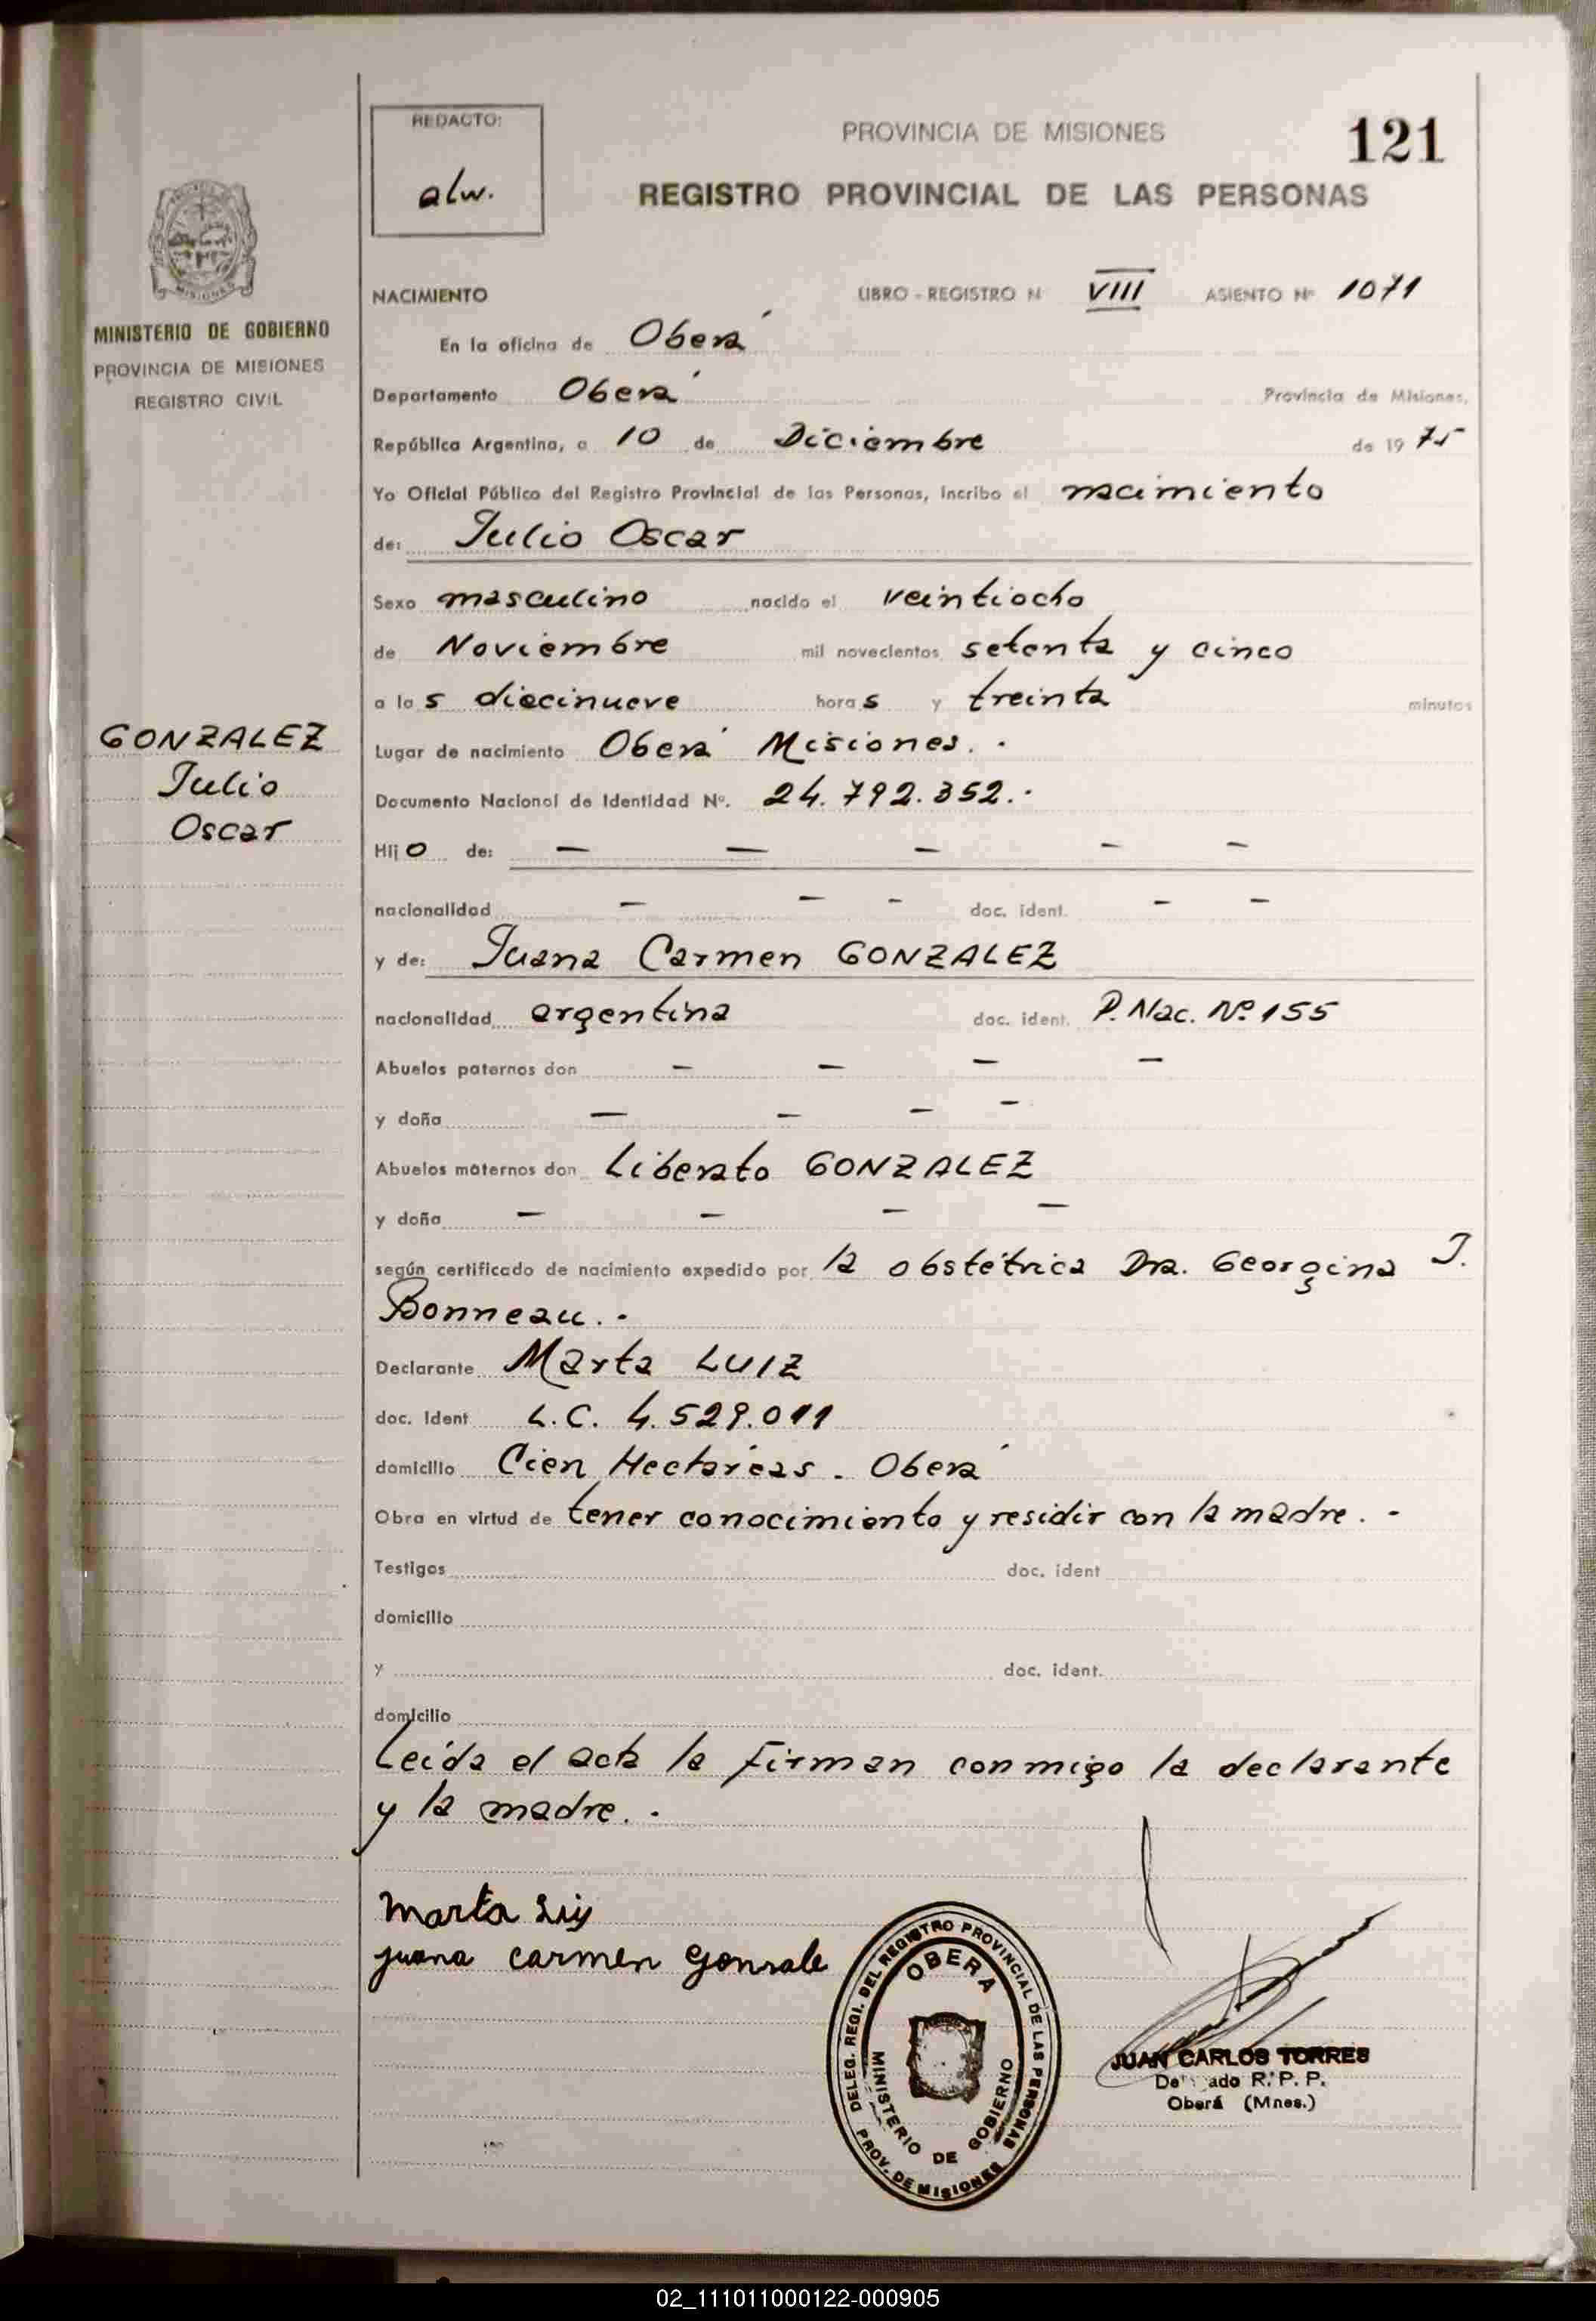 REDACTO:
alw.
PROVINCIA DE MISIONES
121
REGISTRO PROVINCIAL DE LAS PERSONAS
MISIONES
MINISTERIO DE GOBIERNO
PROVINCIA DE MISIONES
REGISTRO CIVIL
NACIMIENTO LIBRO - REGISTRO N VIII ASIENTO Nº 1071
En la oficina de Oberá
Departamento Oberá Provincia de Misiones,
República Argentina, a 10 de Diciembre de 1975
Yo Oficial Público del Registro Provincial de las Personas, incribo el nacimiento
de: Julio Oscar
Sexo masculino nacido el veintiocho
de Noviembre mil novecientos setenta y cinco
a las diecinueve horas y treinta minutos
GONZALEZ
Julio
Oscar
Lugar de nacimiento Oberá Misiones. -
Documento Nacional de Identidad Nº. 24.792.352.-
Hijo de: — — — — —
nacionalidad — — — doc. ident. — —
y de: Juana Carmen GONZALEZ
nacionalidad argentina doc. ident. P. Nac. Nº 155
Abuelos paternos don — — — —
y doña — — — —
Abuelos maternos don Liberato GONZALEZ
y doña — — — —
según certificado de nacimiento expedido por la obstétrica Dra. Georgina J.
Bonneau. -
Declarante Marta LUIZ
doc. Ident L.C. 4.529.011
domicilio Cien Hectáreas - Oberá
Obra en virtud de tener conocimiento y residir con la madre. -
Testigos doc. ident
domicilio
y doc. ident.
domicilio
Leída el acta la firman conmigo la declarante
y la madre. -
Marta Luiz
juana carmen gonsale
DELEG. REGI. DEL REGISTRO PROVINCIAL DE LAS PERSONAS
OBERA
MINISTERIO DE GOBIERNO
PROV. DE MISIONES
JUAN CARLOS TORRES
ado R. P. P.
Oberá (Mnes.)
02_111011000122-000905